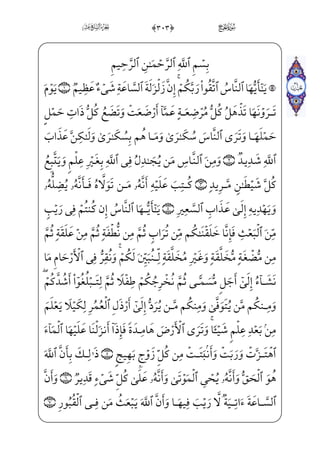 ﴿٣٠٣﴾
بِسْمِ ٱللَّهِ ٱلرَّحْمَـٰنِ ٱلرَّحِيمِ
يَـٰٓأَيُّهَا ٱلنَّاسُ ٱتَّقُوا۟ رَبَّكُمْ ۚ إِنَّ زَلْزَلَةَ ٱلسَّاعَةِ شَىْءٌ عَظِيمٌ ۝ يَوْمَ
تَرَوْنَهَا تَذْهَلُ كُلُّ مُرْضِعَةٍ عَمَّآ أَرْضَعَتْ وَتَضَعُ كُلُّ ذَاتِ حَمْلٍ
حَمْلَهَا وَتَرَى ٱلنَّاسَ سُكَـٰرَىٰ وَمَا هُم بِسُكَـٰرَىٰ وَلَـٰكِنَّ عَذَابَ
ٱللَّهِ شَدِيدٌ ۝ وَمِنَ ٱلنَّاسِ مَن يُجَـٰدِلُ فِى ٱللَّهِ بِغَيْرِ عِلْمٍ وَيَتَّبِعُ
كُلَّ شَيْطَـٰنٍ مَّرِيدٍ ۝ كُتِبَ عَلَيْهِ أَنَّهُۥ مَن تَوَلَّاهُ فَأَنَّهُۥ يُضِلُّهُۥ
وَيَهْدِيهِ إِلَىٰ عَذَابِ ٱلسَّعِيرِ ۝ يَـٰٓأَيُّهَا ٱلنَّاسُ إِن كُنتُمْ فِى رَيْبٍ
مِّنَ ٱلْبَعْثِ فَإِنَّا خَلَقْنَـٰكُم مِّن تُرَابٍ ثُمَّ مِن نُّطْفَةٍ ثُمَّ مِنْ عَلَقَةٍ ثُمَّ
مِن مُّضْغَةٍ مُّخَلَّقَةٍ وَغَيْرِ مُخَلَّقَةٍ لِّنُبَيِّنَ لَكُمْ ۚ وَنُقِرُّ فِى ٱلْأَرْحَامِ مَا
نَشَآءُ إِلَىٰٓ أَجَلٍ مُّسَمًّى ثُمَّ نُخْرِجُكُمْ طِفْلًا ثُمَّ لِتَبْلُغُوٓا۟ أَشُدَّكُمْ ۖ
وَمِنكُم مَّن يُتَوَفَّىٰ وَمِنكُم مَّن يُرَدُّ إِلَىٰٓ أَرْذَلِ ٱلْعُمُرِ لِكَيْلَا يَعْلَمَ
مِنۢ بَعْدِ عِلْمٍ شَيْـًٔا ۚ وَتَرَى ٱلْأَرْضَ هَامِدَةً فَإِذَآ أَنزَلْنَا عَلَيْهَا ٱلْمَآءَ
ٱهْتَزَّتْ وَرَبَتْ وَأَنۢبَتَتْ مِن كُلِّ زَوْجٍۭ بَهِيجٍ ۝ ذَٰلِكَ بِأَنَّ ٱللَّهَ
هُوَ ٱلْحَقُّ وَأَنَّهُۥ يُحْىِ ٱلْمَوْتَىٰ وَأَنَّهُۥ عَلَىٰ كُلِّ شَىْءٍ قَدِيرٌ ۝ وَأَنَّ
ٱلسَّاعَةَ ءَاتِيَةٌ لَّا رَيْبَ فِيهَا وَأَنَّ ٱللَّهَ يَبْعَثُ مَن فِى ٱلْقُبُورِ ۝